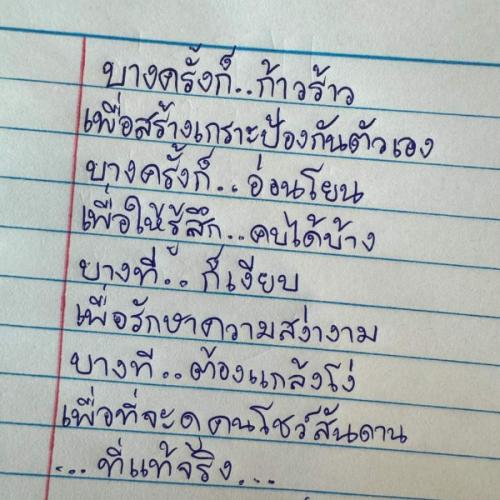 บางครั้งก็..ก้าวร้าว
เพื่อสร้างเกราะป้องกันตัวเอง
บางครั้งก็..อ่อนโยน
เพื่อให้รู้สึก..คบได้บ้าง
บางที..ก็เงียบ
เพื่อรักษาความสง่างาม
บางที..ต้องแกล้งโง่
เพื่อที่จะดูคนโชว์สันดาน
...ที่แท้จริง...